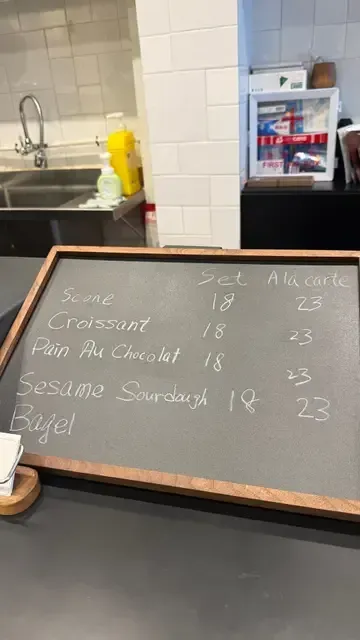 Set A la carte
Scone 18 23
Croissant 18 23
Pain Au Chocolat 18 23
Sesame Sourdough 18 23
Bagel
FIRST